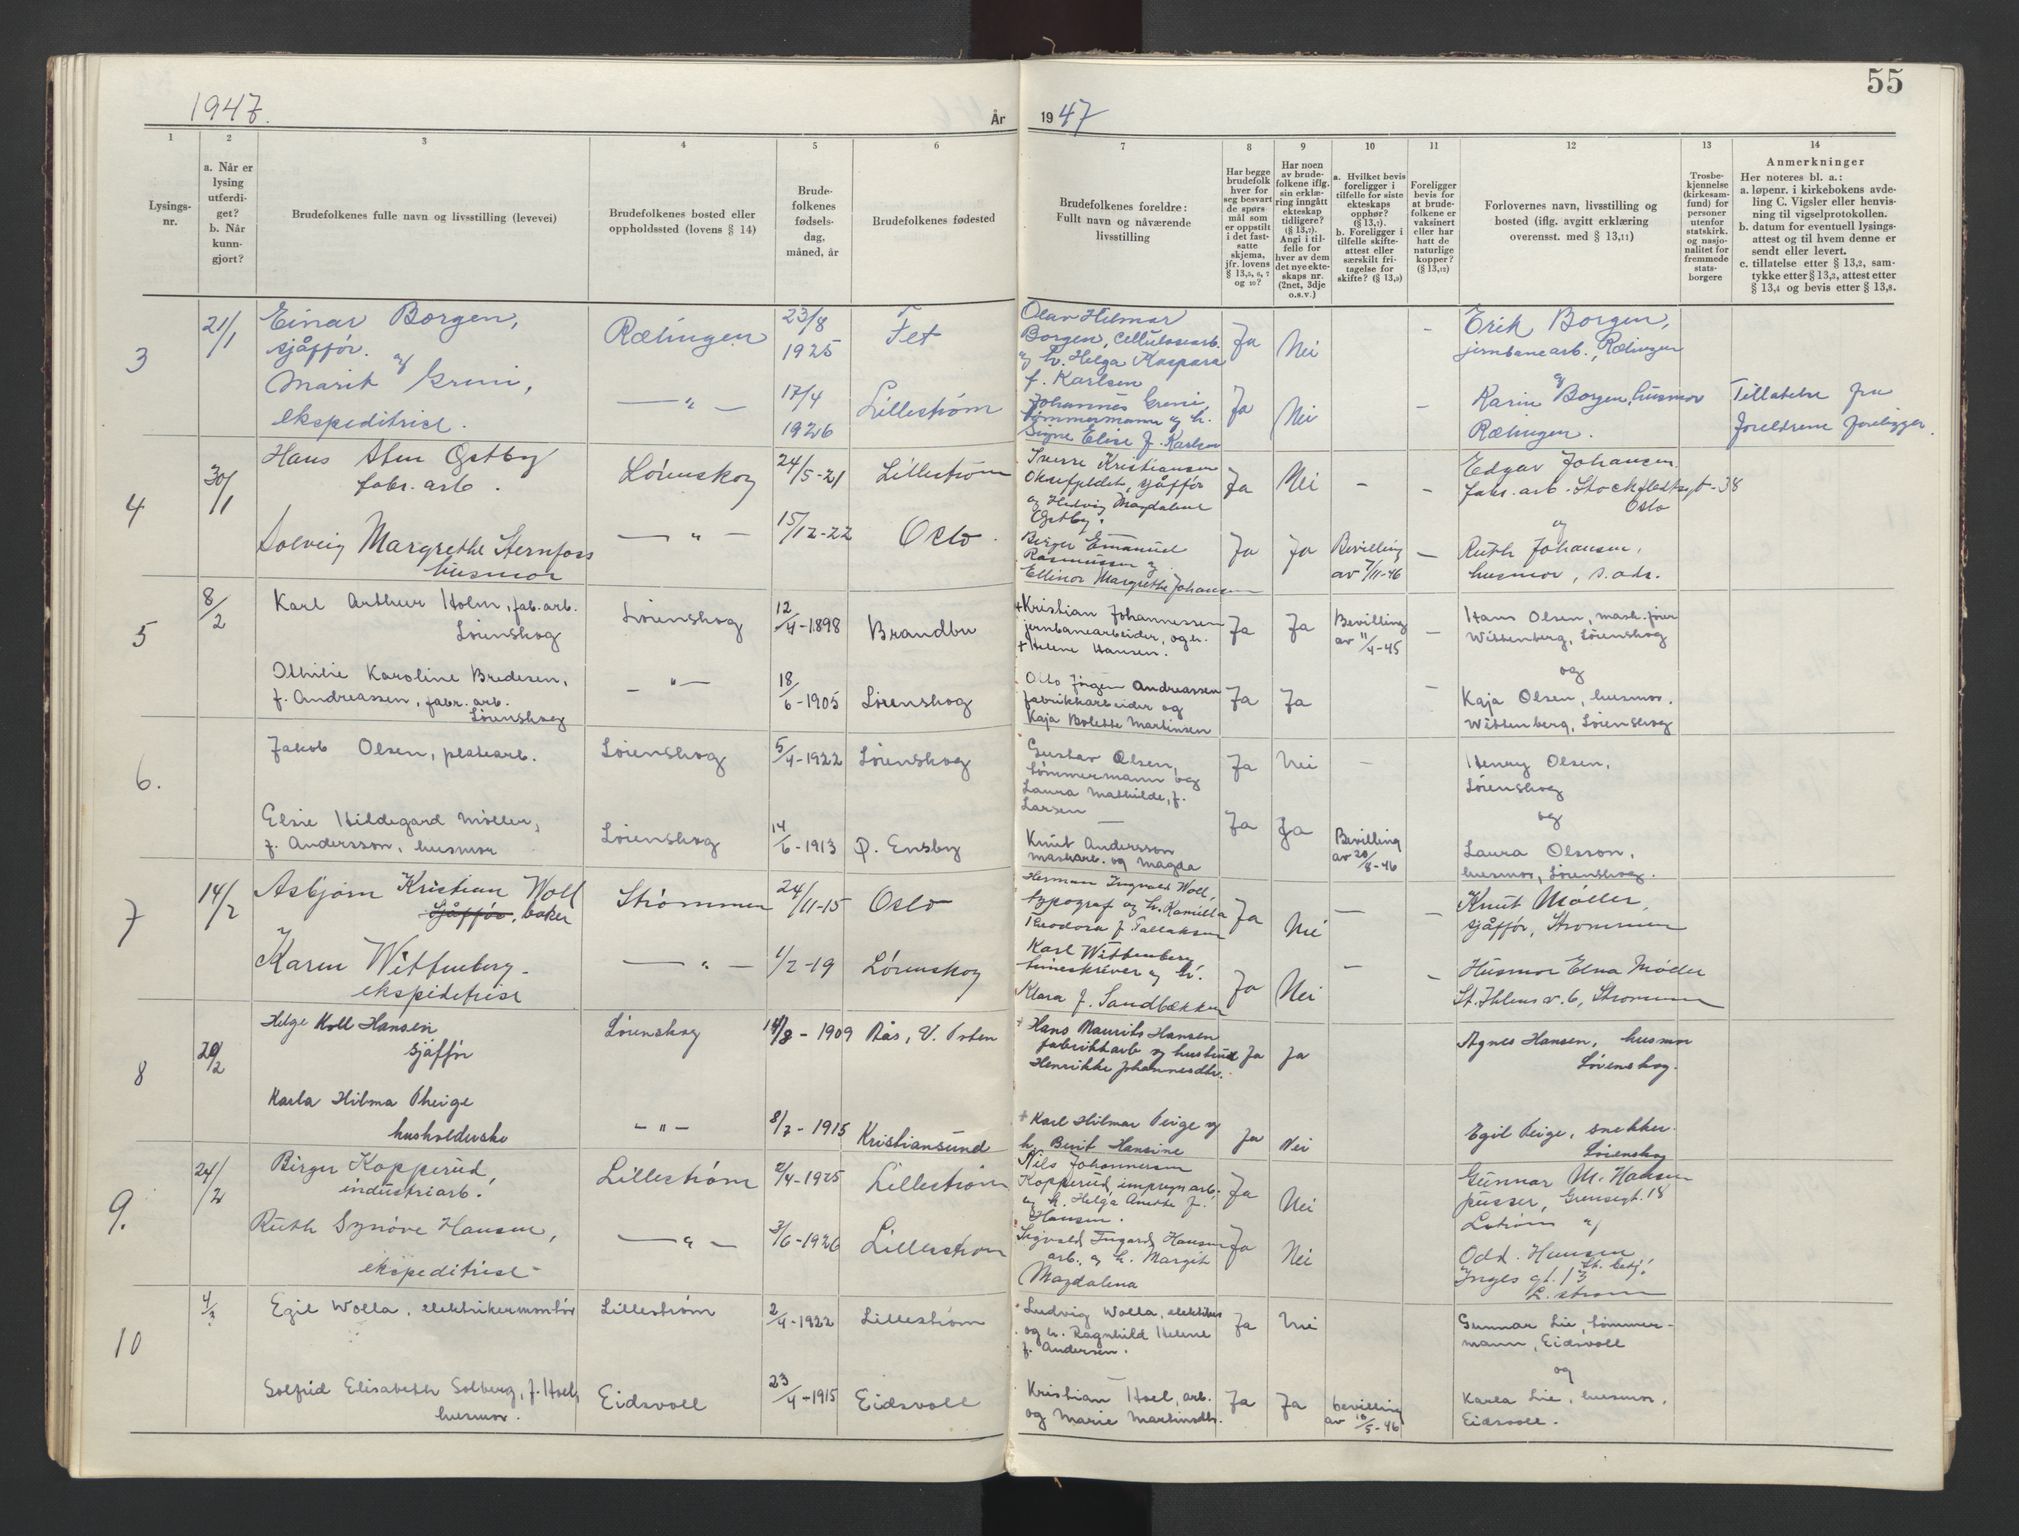 55
1947.
År
1947
1
2
3
4
5
6
7
8
9
10
11
12
13
14
Lysings-
nr.
a. Når er
lysing
utferdi-
get?
b. Når
kunn-
gjort?
Brudefolkenes fulle navn og livsstilling (levevei)
Brudefolkenes bosted eller
oppholdssted (lovens § 14)
Brude-
folkenes
fødsels-
dag,
måned, år
Brudefolkenes fødested
Brudefolkenes foreldre:
Fullt navn og nåværende
livsstilling
Har begge
brudefolk
hver for
seg besvart
de spørs-
mål som
er oppstilt
i det fast-
satte
skjema,
jfr. lovens
§ 13,5, 6, 7
og 10?
Har noen
av brude-
folkene iflg.
sin erklæ-
ring inngått
ekteskap
tidligere?
(§ 13,7).
Angi i til-
felle for
hver av dem
det nye ekte-
skaps nr.
(2net, 3dje
o.s.v.)
a. Hvilket bevis
foreligger i
tilfelle for siste
ekteskaps
opphør?
(§ 13,7).
b. Foreligger i
tilfelle skifte-
attest eller
særskilt fri-
tagelse for
skifte? (§ 13,9)
Foreligger
bevis for
at brude-
folkene er
vaksinert
eller har
hatt de
naturlige
kopper?
(§ 13,12)
Forlovernes navn, livsstilling og
bosted (iflg. avgitt erklæring
overensst. med § 13,11)
Trosbe-
kjennelse
(kirkesam-
fund) for
personer
utenfor
statskirk.
og nasjo-
nalitet for
fremmede
stats-
borgere
Anmerkninger
Her noteres bl. a.:
a. løpenr. i kirkebokens avde-
ling C. Vigsler eller henvis-
ning til vigselprotokollen.
b. datum for eventuell lysings-
attest og til hvem denne er
sendt eller levert.
c. tillatelse etter § 13,2, sam-
tykke etter § 13,3, attest etter
§ 13,4 og bevis etter § 13,8.
3
21/1
Einar Borgen,
sjåffør.
og
Marit Greni,
ekspeditrise.
Rælingen
— " —
23/8
1925
17/4
1926
Fet
Lillestrøm
Olav Hilmar
Borgen, Cellulosearb.
og h. Helga Kaspara
f. Karlsen
Johannes Greni
tømmermann og h.
Signe Elise f. Karlsen
Ja
Nei
–
Ja
Nei
–
Erik Borgen,
jernbanearb., Rælingen
og
Karin Borgen, husmor
Rælingen.
Tillatelse fra
foreldrene foreligger.
4
30/1
Hans Sten Østby
fabr. arb.
Solveig Margrethe Sternfoss
husmor
Lørenskog
— " —
24/5-21
15/12-22
Lillestrøm
Oslo.
Sverre Kristiansen
Oksefjeldet, sjåffør
og Hedvig Magdalene
Østby.
Birger Emanuel
Rasmussen og
Ellinor Margrethe Johansen
Ja
Nei
–
–
Ja
Ja
Bevilling
av 7/11-46
–
Edgar Johansen
fabr. arb. Stockfledtsgt-38
Oslo
og
Ruth Johansen,
husmor, s. adr.
5
8/2
Karl Arthur Holm, fab. arb.
Lørenskog
Othilie Karoline Bredesen,
f. Andreassen, fabr. arb.
Lørenskog
Lørenskog
— " —
12/4-1898
18/6-1905
Brandbu
Lørenskog
+ Kristian Johannessen
jernbanearbeider, og h.
+ Helene Hansen.
Otto Jørgen Andreassen
fabrikkarbeider og
Kaja Bolette Martinsen
Ja
Ja
Bevilling
av 11/4-45
–
Ja
Ja
–
Hans Olsen, mask. fører
Wittenberg, Lørenskog
og
Kaja Olsen, husmor.
Wittenberg, Lørenskog
6.
Jakob Olsen, platearb.
Elsie Hildegard Møller,
f. Andersson, husmor
Lørenskog
Lørenskog
5/4-1922
14/6-1913
Lørenskog
Ø. Ensby
Gustav Olsen,
tømmermann og
Laura Mathilde, f.
Larsen
—
Knut Andersson
maskarb. og Magda
Ja
Nei
–
Ja
Ja
Bevilling
av 20/8-46
Henry Olsen,
Lørenskog
og
Laura Olsson,
husmor, Lørenskog.
7
14/2
Asbjørn Kristian Woll
sjåffør, baker
Karen Wittenberg.
ekspeditrise
Strømmen
— " —
24/11-15
1/2-19
Oslo
Lørenskog
Herman Ingvald Woll,
typograf og h. Kamilla
Theodora f. Tallaksen
Karl Wittenberg,
timeskriver og h.
Klara f. Sandbækken
Ja
Nei
–
–
Ja
Nei
–
–
Knut Møller,
sjåffør, Strømmen
Husmor Elna Møller
St. Halvs v. 6, Strømmen
8
20/2
Helge Koll Hansen
sjåffør
Karla Hilma Theige
husholderske
Lørenskog
— " —
14/8 - 1909
8/7 - 1915
Ås, V. Toten
Kristiansund
+ Hans Maurits Hansen
fabrikkarb og hustrud
Henrikke Johannesdtr.
+ Karl Hilmar Teige og
h. Berit Hansine
Ja
Ja
Ja
Nei
Agnes Hansen, husmor
Lørenskog.
Egil Teige, snekker.
Lørenskog
9.
24/2
Birger Kopperud,
industriarb.
Ruth Synøve Hansen,
ekspeditrise
Lillestrøm
— " —
2/4-1925
3/6-1926
Lillestrøm
Lillestrøm
Nils Johannesen
Kopperud, impregn. arb.
og h. Helga Anette f.
Hansen.
Sigvald Ingard Hansen
arb., og h. Margit
Magdalena
Ja
Nei
Ja
Nei
Gunnar M. Hansen
pusser, Grensegt. 18
L.strøm og
Odd. Hansen
st. betj.
Inges gt. 13
L. strøm
10
4/3
Egil Wolla, elektrikermontør
Solfrid Elisabeth Solberg, f. Hoel,
husmor.
Lillestrøm
Eidsvoll
2/4-1922
23/4-1915
Lillestrøm
Eidsvoll
Ludvig Wolla, elektriker
og h. Ragnhild Helene
f. Andersen.
Kristian Hoel, arb.
og Marie Martinsdtr.
Ja
Nei
Ja
Ja
bevilling
av 10/5-46
Gunnar Lie, tømmer-
mann, Eidsvoll
og
Karla Lie, husmor,
Eidsvoll.